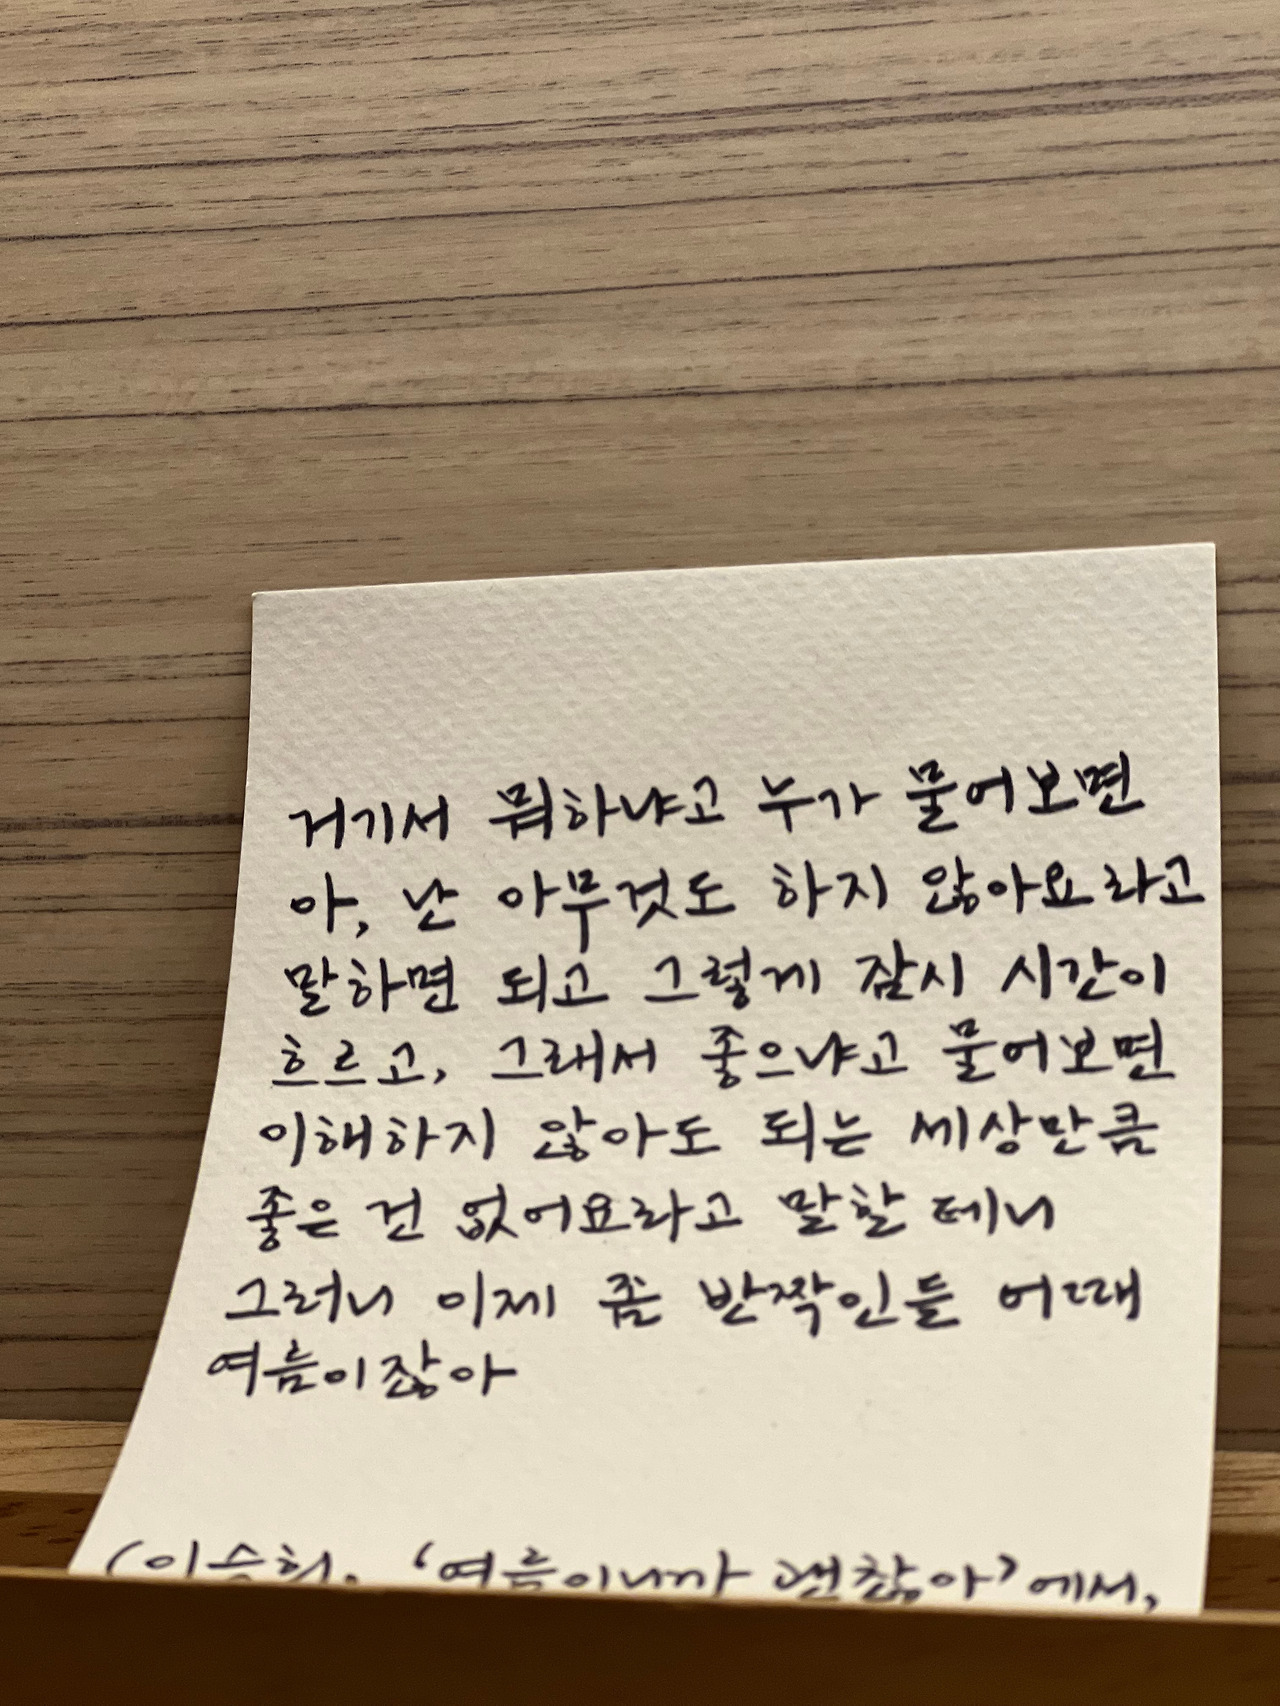 거기서 뭐하냐고 누가 물어보면
아, 난 아무것도 하지 않아요라고
말하면 되고 그렇게 잠시 시간이
흐르고, 그래서 좋으냐고 물어보면
이해하지 않아도 되는 세상만큼
좋은 건 없어요라고 말할 테니
그러니 이제 좀 반짝인들 어때
여름이잖아
(이승희, '여름이니까 괜찮아'에서,